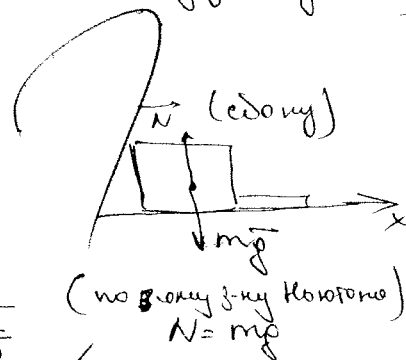 N (сбоку)
x
mg
(по з-ону з-ну Ньютона)
N = mg